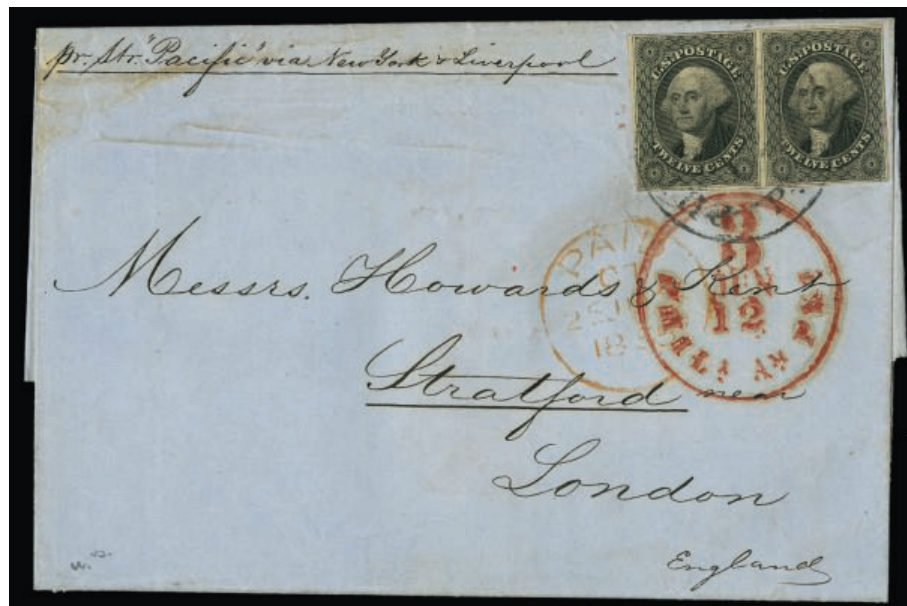 pr. Str. "Pacific" via New York & Liverpool
U.S. POSTAGE
TWELVE CENTS
U.S. POSTAGE
TWELVE CENTS
PAID
3
12
Messrs. Howards & Kent
Stratford near
London
England